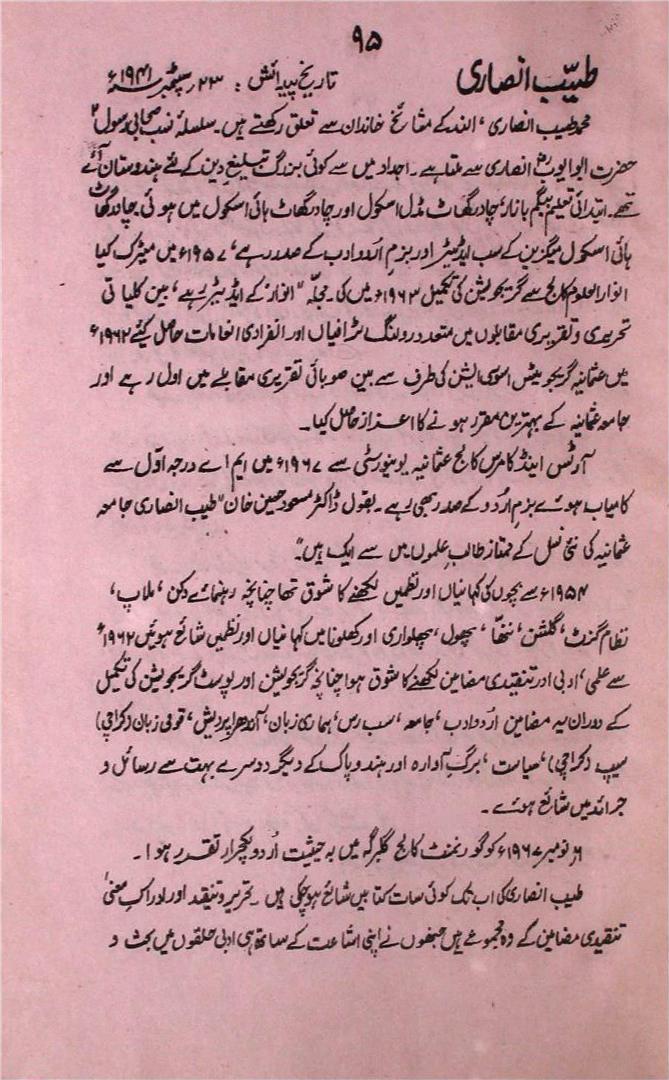 ۹۵
طیّب انصاری
تاریخ پیدائش : ۲۳؍ ستمبر ۱۹۴۱ء
محمد طیب انصاری، النّد کے مشائخ خاندان سے تعلق رکھتے ہیں۔ سلسلۂ نسب صحابی رسولؐ
حضرت ابو ایوبؓ انصاری سے ملتا ہے۔ اجداد میں سے کوئی بزرگ تبلیغِ دین کے لئے ہندوستان آئے
تھے۔ ابتدائی تعلیم بیگم بازار، چادر گھاٹ مڈل اسکول اور چادر گھاٹ ہائی اسکول میں ہوئی۔ چادر گھاٹ
ہائی اسکول میگزین کے سب ایڈیٹر اور بزمِ اُردو ادب کے صدر رہے، ۱۹۵۷ء میں میٹرک کیا
انوار العلوم کالج سے گریجویشن کی تکمیل ۱۹۶۳ء میں کی۔ مجلّہ "انوار" کے ایڈیٹر رہے، بین کلیاتی
تحریری و تقریری مقابلوں میں متعدد رولنگ ٹرافیاں اور انفرادی انعامات حاصل کیئے ۱۹۶۲ء
میں عثمانیہ گریجویٹس اسوسی ایشن کی طرف سے بین صوبائی تقریری مقابلے میں اول رہے اور
جامعہ عثمانیہ کے بہترین مقرر ہونے کا اعزاز حاصل کیا۔
آرٹس اینڈ کامرس کالج عثمانیہ یونیورسٹی سے ۱۹۶۷ء میں ایم اے درجہ اوّل سے
کامیاب ہوئے بزمِ اُردو کے صدر بھی رہے۔ بقول ڈاکٹر مسعود حسین خان "طیب انصاری جامعہ
عثمانیہ کی نئی نسل کے ممتاز طالب علموں میں سے ایک ہیں۔"
۱۹۵۴ء سے بچوں کی کہانیاں اور نظمیں لکھنے کا شوق تھا چنانچہ رہنمائے دکن، ملاپ،
نظام گزٹ، گلشن، ننھّا، پھول، پھلواری اور کھلونا میں کہانیاں اور نظمیں شائع ہوئیں ۱۹۶۲ء
سے علمی، ادبی اور تنقیدی مضامین لکھنے کا شوق ہوا چنانچہ گریجویشن اور پوسٹ گریجویشن کی تکمیل
کے دوران یہ مضامین اُردو ادب، جامعہ، سب رس، ہماری زبان، آندھرا پردیش، قومی زبان (کراچی)
سیپ (کراچی)، سیاست، برگِ آوارہ اور ہندو پاک کے دیگر دوسرے بہت سے رسائل و
جرائد میں شائع ہوئے۔
۶؍ نومبر ۱۹۶۷ء کو گورنمنٹ کالج گلبرگہ میں بہ حیثیت اُردو لیکچرار تقرر ہوا۔
طیب انصاری کی اب تک کوئی سات کتابیں شائع ہو چکی ہیں۔ تحریر و تنقید اور ادراکِ معنیٰ
تنقیدی مضامین کے وہ مجموعے ہیں جنھوں نے اپنی اشاعت کے ساتھ ہی ادبی حلقوں میں بحث و